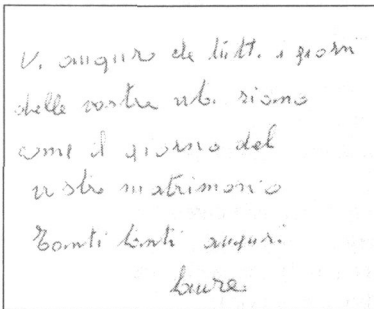 Vi auguro che tutti i giorni
delle vostra vita siano
come il giorno del
vostro matrimonio
Tanti tanti auguri
Laura